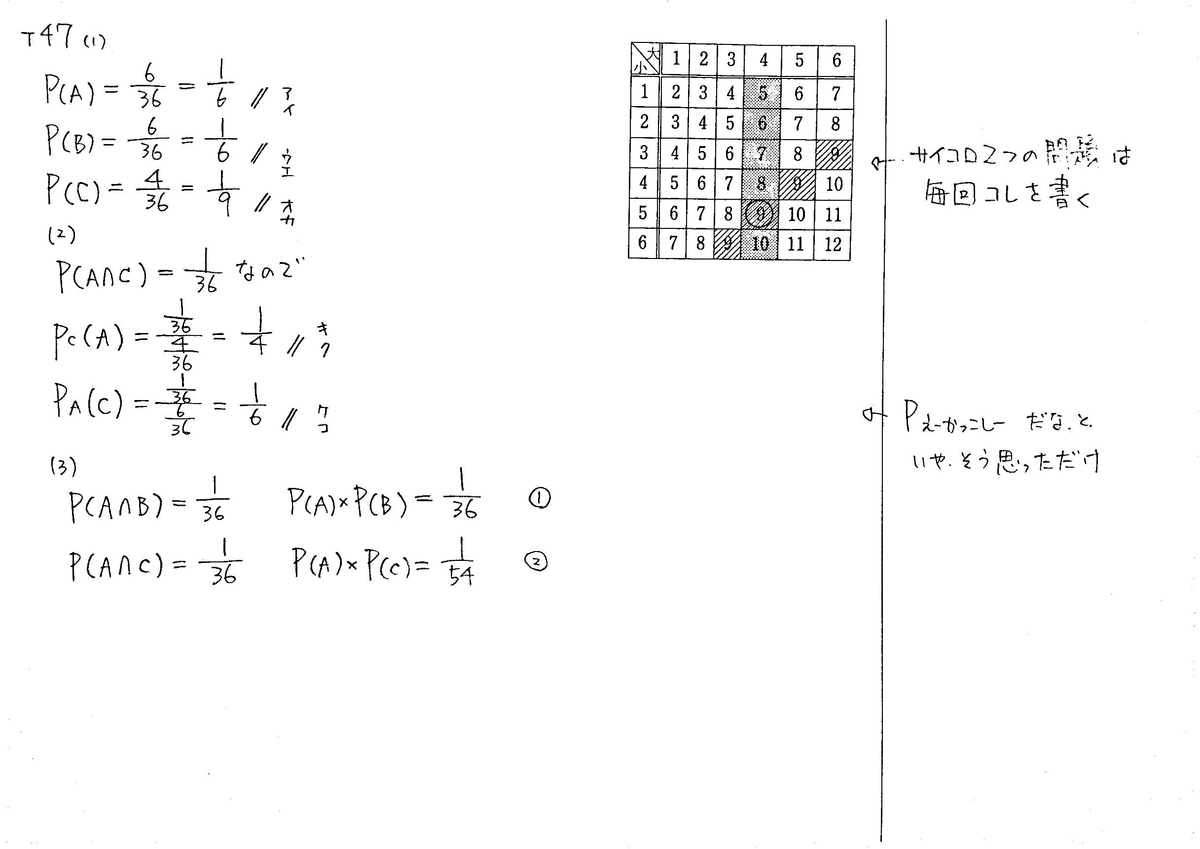 T47 (1)
P(A) = 6/36 = 1/6 // アイ
P(B) = 6/36 = 1/6 // ウエ
P(C) = 4/36 = 1/9 // オカ
(2)
P(A∩C) = 1/36 なので
Pc(A) = (1/36)/(4/36) = 1/4 // キク
PA(C) = (1/36)/(6/36) = 1/6 // ケコ
(3)
P(A∩B) = 1/36 P(A)×P(B) = 1/36 ①
P(A∩C) = 1/36 P(A)×P(C) = 1/54 ②
大 小 1 2 3 4 5 6
1 2 3 4 5 6 7
2 3 4 5 6 7 8
3 4 5 6 7 8 9
4 5 6 7 8 9 10
5 6 7 8 9 10 11
6 7 8 9 10 11 12
サイコロ2つの問題は
毎回コレを書く
Pえーかっこしー だな、と
いや、そう思っただけ